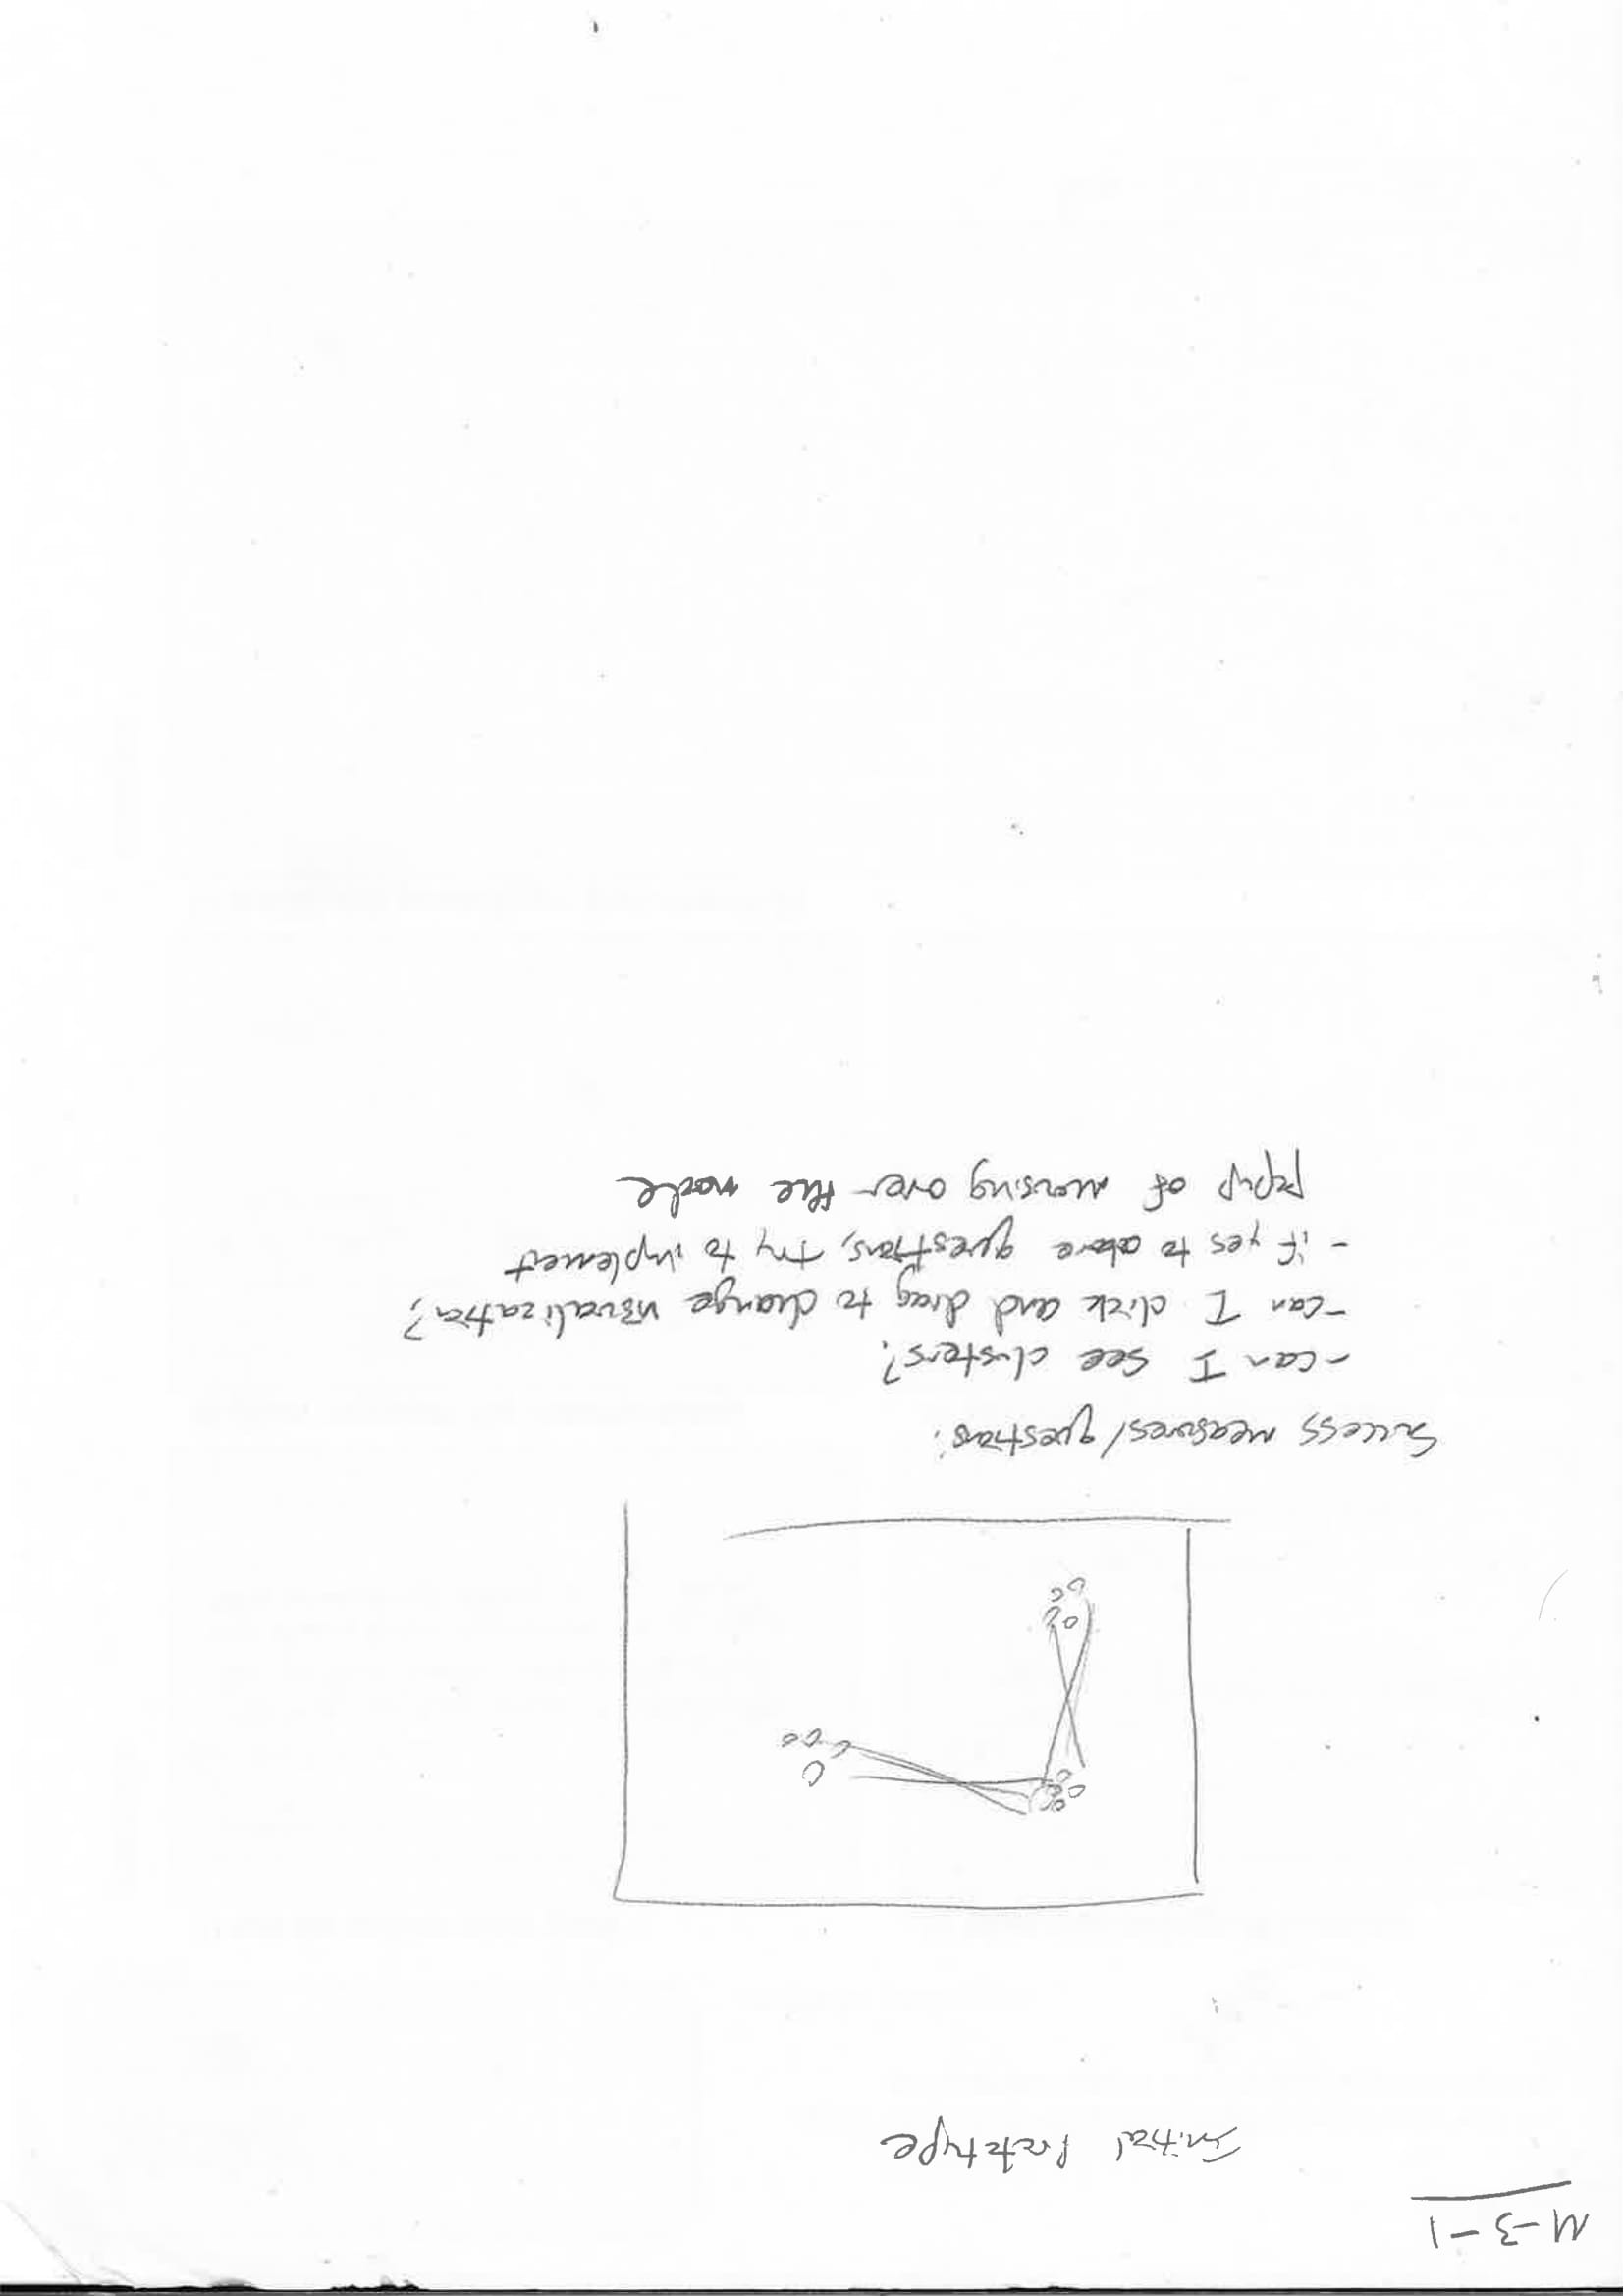 M-3-1
Initial Prototype
Success measures/questions:
-can I see clusters?
-can I click and drag to change visualization?
- if yes to above questions, try to implement
popup of mousing over the node